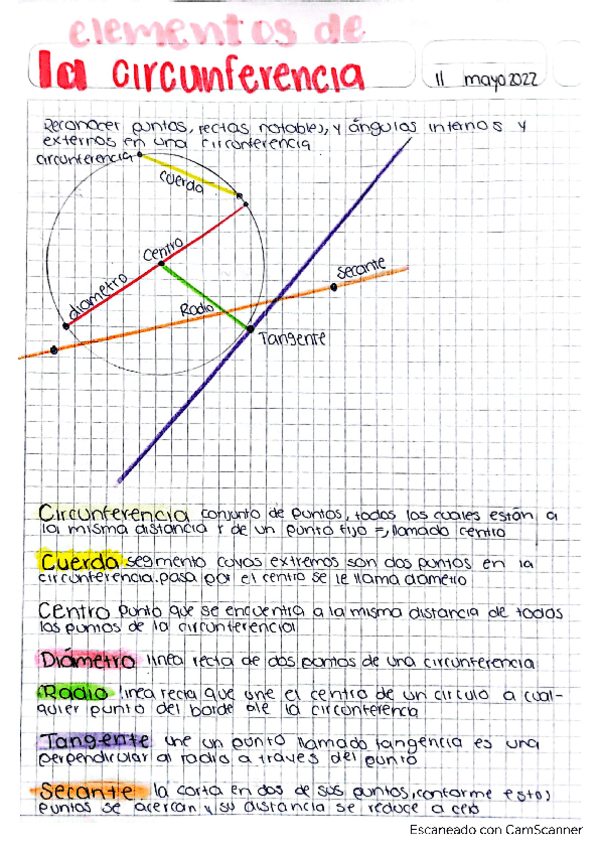 elementos de
la circunferencia
11 mayo 2022
Reconocer puntos, rectas notables, y ángulos internos y
externos en una circunferencia
circunferencia
cuerda
Centro
diametro
Secante
Radio
Tangente
Circunferencia conjunto de puntos, todos los cuales están a
la misma distancia r de un punto fijo =, llamado centro
Cuerda segmento cuyos extremos son dos puntos en la
circunferencia. pasa por el centro se le llama diametro
Centro punto que se encuentra a la misma distancia de todos
los puntos de la circunferencial
Diámetro linea recta de dos puntos de una circunferencia
Radio linea recta que une el centro de un circulo a cual-
quier punto del borde de la circunferencia
Tangente une un punto llamado tangencia es una
perpendicular al radio a través del punto
Secante la corta en dos de sus puntos, conforme estos
puntos se acercan y su distancia se reduce a cero
Escaneado con CamScanner